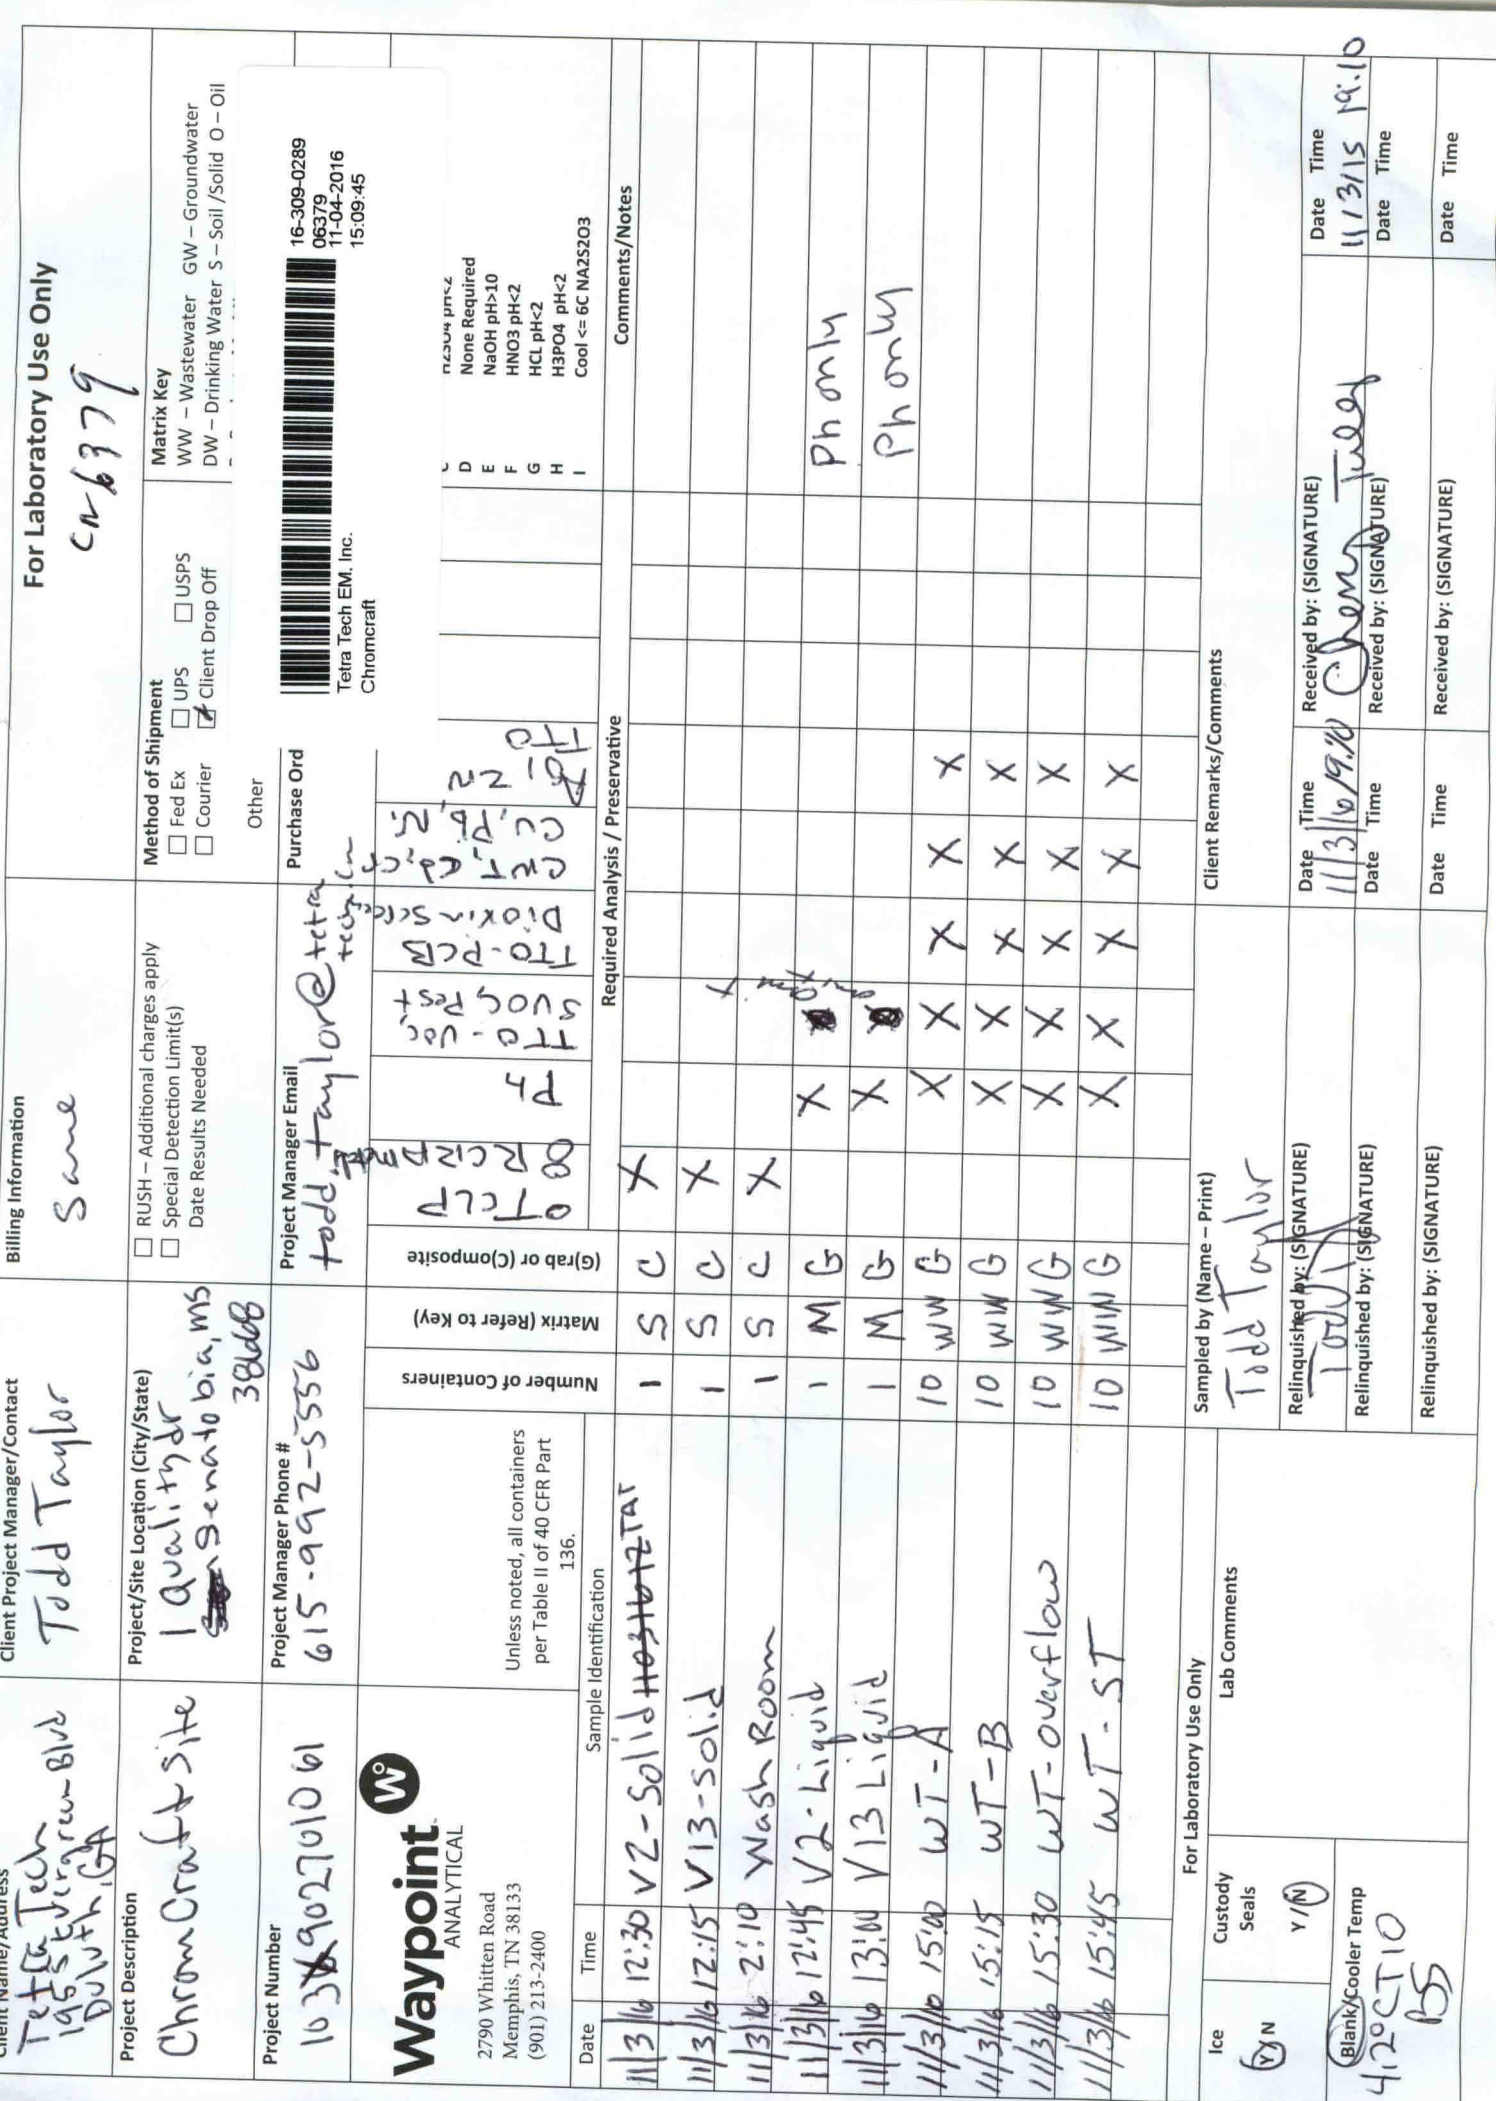 Client Name/Address
Tetra Tech
1955 Evergreen Blvd
Duluth, GA
Client Project Manager/Contact
Todd Taylor
Billing Information
Same
For Laboratory Use Only
CN6379
Project Description
ChromCraft Site
Project/Site Location (City/State)
1 Quality dr
Senatobia, MS
38668
☐ RUSH – Additional charges apply
☐ Special Detection Limit(s)
Date Results Needed
Method of Shipment
☐ Fed Ex ☐ UPS ☐ USPS
☐ Courier ☒ Client Drop Off
Other
Matrix Key
WW – Wastewater GW – Groundwater
DW – Drinking Water S – Soil /Solid O – Oil
Project Number
Project Manager Phone #
615-992-5556
Project Manager Email
todd.taylor@tetra
tech.com
Purchase Ord
16-309-0289
06379
11-04-2016
15:09:45
Tetra Tech EM. Inc.
Chromcraft
Waypoint
ANALYTICAL
2790 Whitten Road
Memphis, TN 38133
(901) 213-2400
Unless noted, all containers
per Table II of 40 CFR Part
136.
Number of Containers
Matrix (Refer to Key)
(G)rab or (C)omposite
TCLP
8 RCRA metals
Ph
TTO - VOC,
SVOC, Pest
TTO-PCB
Dioxin Screen
Cu, Pb, Ni,
ZN
TTO
C H2SO4 pH<2
D None Required
E NaOH pH>10
F HNO3 pH<2
G HCL pH<2
H H3PO4 pH<2
I Cool <= 6C NA2S2O3
Date Time Sample Identification Required Analysis / Preservative Comments/Notes
11/3/16 12:30 V2-Solid 1 S C X
11/3/16 12:15 V13-Solid 1 S C X
11/3/16 2:10 Wash Room 1 S C X
11/3/16 12:45 V2-Liquid 1 M G X Ph only
11/3/16 13:00 V13 Liquid 1 M G X Ph only
11/3/16 15:00 WT-A 10 WW G X X X X X
11/3/16 15:15 WT-B 10 WW G X X X X X
11/3/16 15:30 WT-overflow 10 WW G X X X X X
11/3/16 15:45 WT-ST 10 WW G X X X X X
For Laboratory Use Only
Ice
Y/N
Custody
Seals
Y/N
Lab Comments
Blank/Cooler Temp
4.2°C T10
BS
Sampled by (Name – Print)
Todd Taylor
Client Remarks/Comments
Relinquished by: (SIGNATURE) Date Time Received by: (SIGNATURE) Date Time
11/3/16 19:10 11/3/15 19:10
Relinquished by: (SIGNATURE) Date Time Received by: (SIGNATURE) Date Time
Relinquished by: (SIGNATURE) Date Time Received by: (SIGNATURE) Date Time